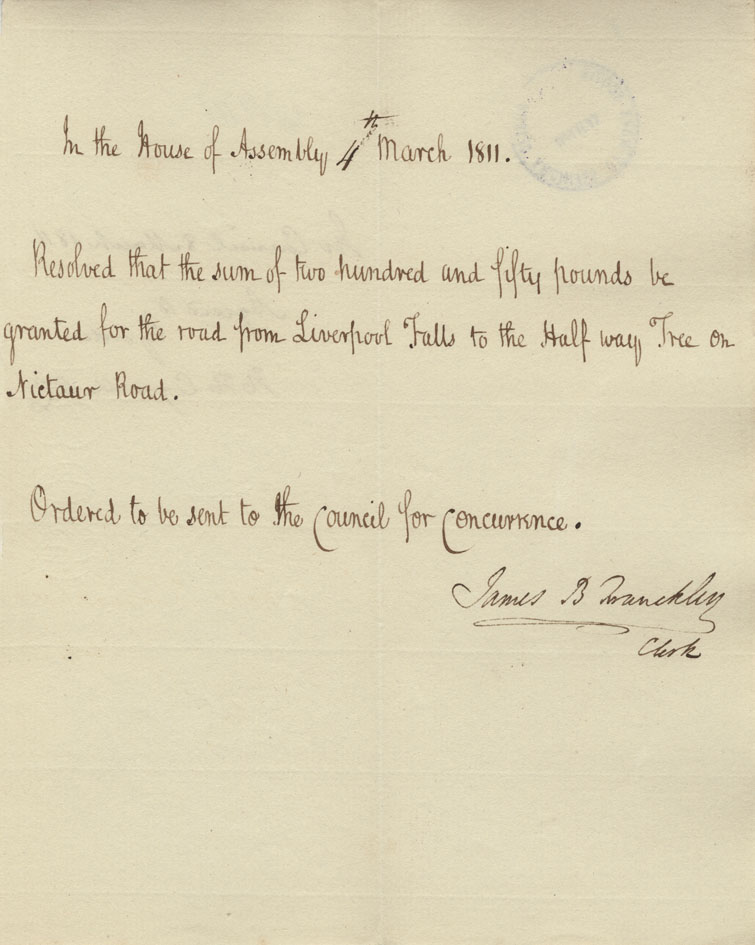 In the House of Assembly 4th March 1811.
Resolved that the sum of two hundred and fifty pounds be
granted for the road from Liverpool Falls to the Half way Tree on
Nictaur Road.
Ordered to be sent to the Council for Concurrence.
James B Franckley
Clerk